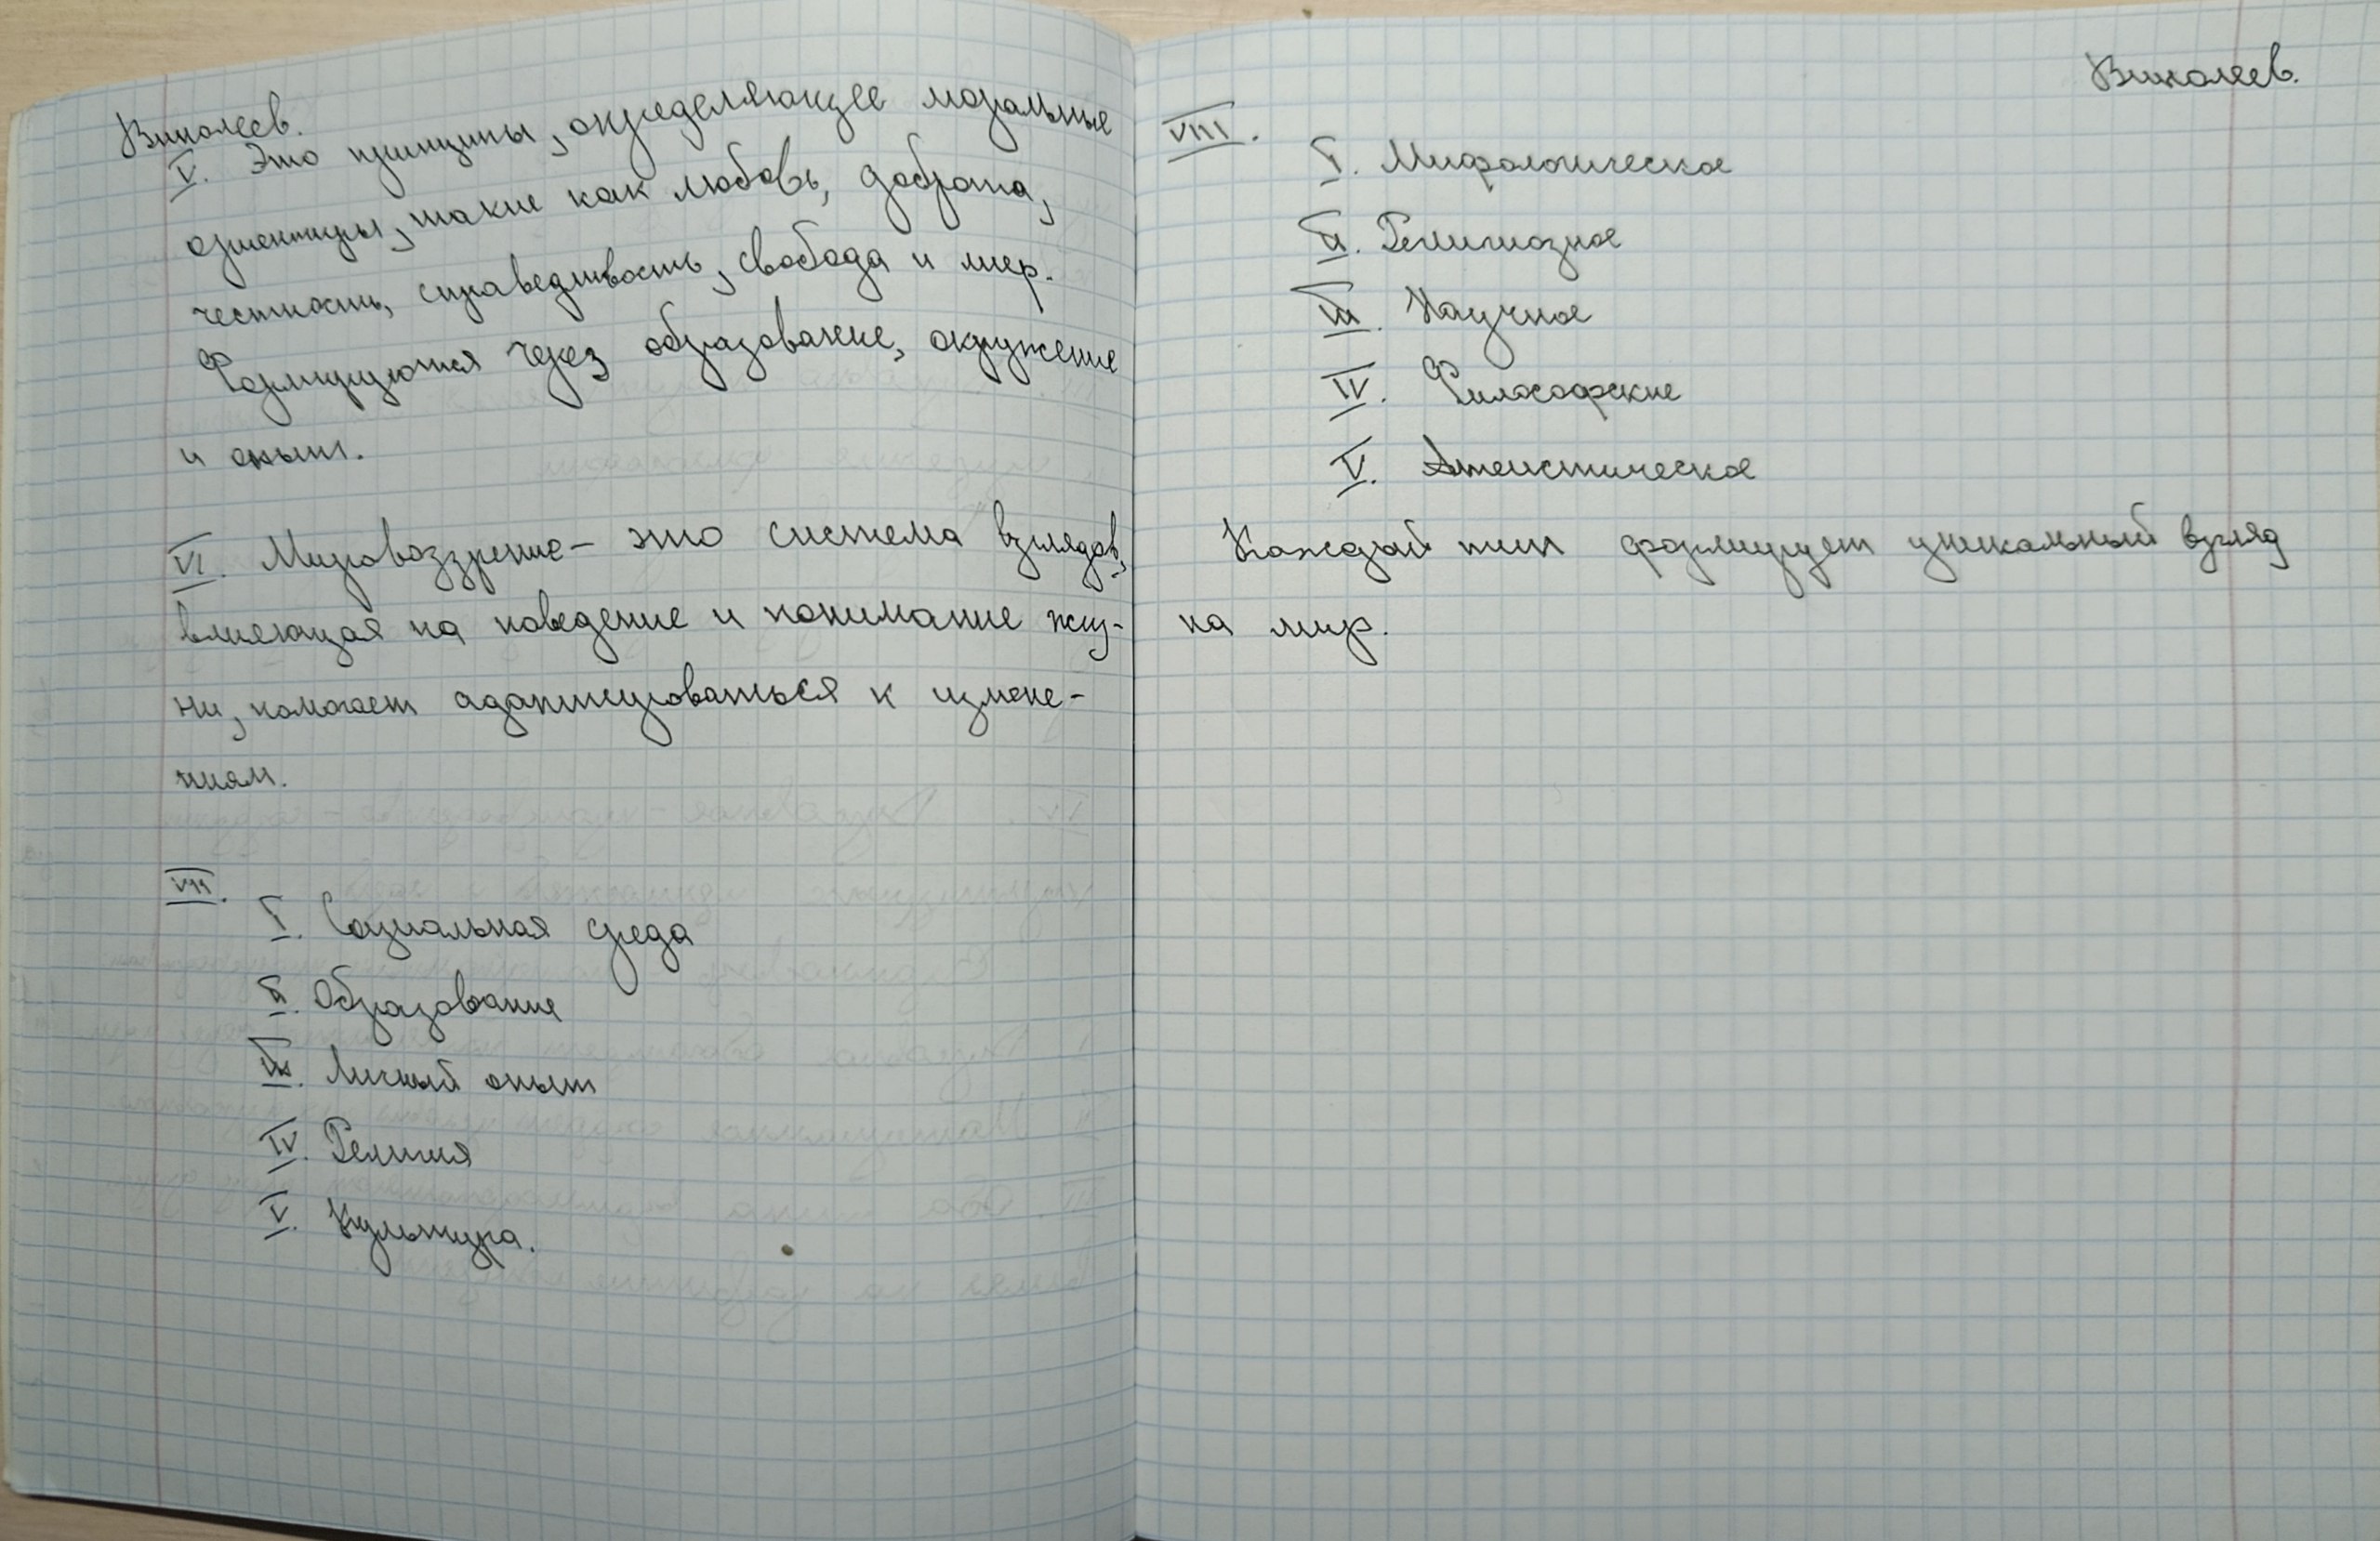 Виколеев.
V. Это принципы, определяющее моральные
ориентиры, такие как любовь, доброта,
честность, справедливость, свобода и мир.
Формируются через образование, окружение
и опыт.
VI. Мировоззрение - это система взглядов,
влияющая на поведение и понимание жиз-
ни, помогает адаптироваться к измене-
ниям.
VII.
I. Социальная среда
II. Образование
III. Личный опыт
IV. Религия
V. Культура.
Виколеев.
VIII.
I. Мифологическое
II. Религиозное
III. Научное
IV. Философские
V. Атеистическое
Каждый тип формирует уникальный взгляд
на мир.